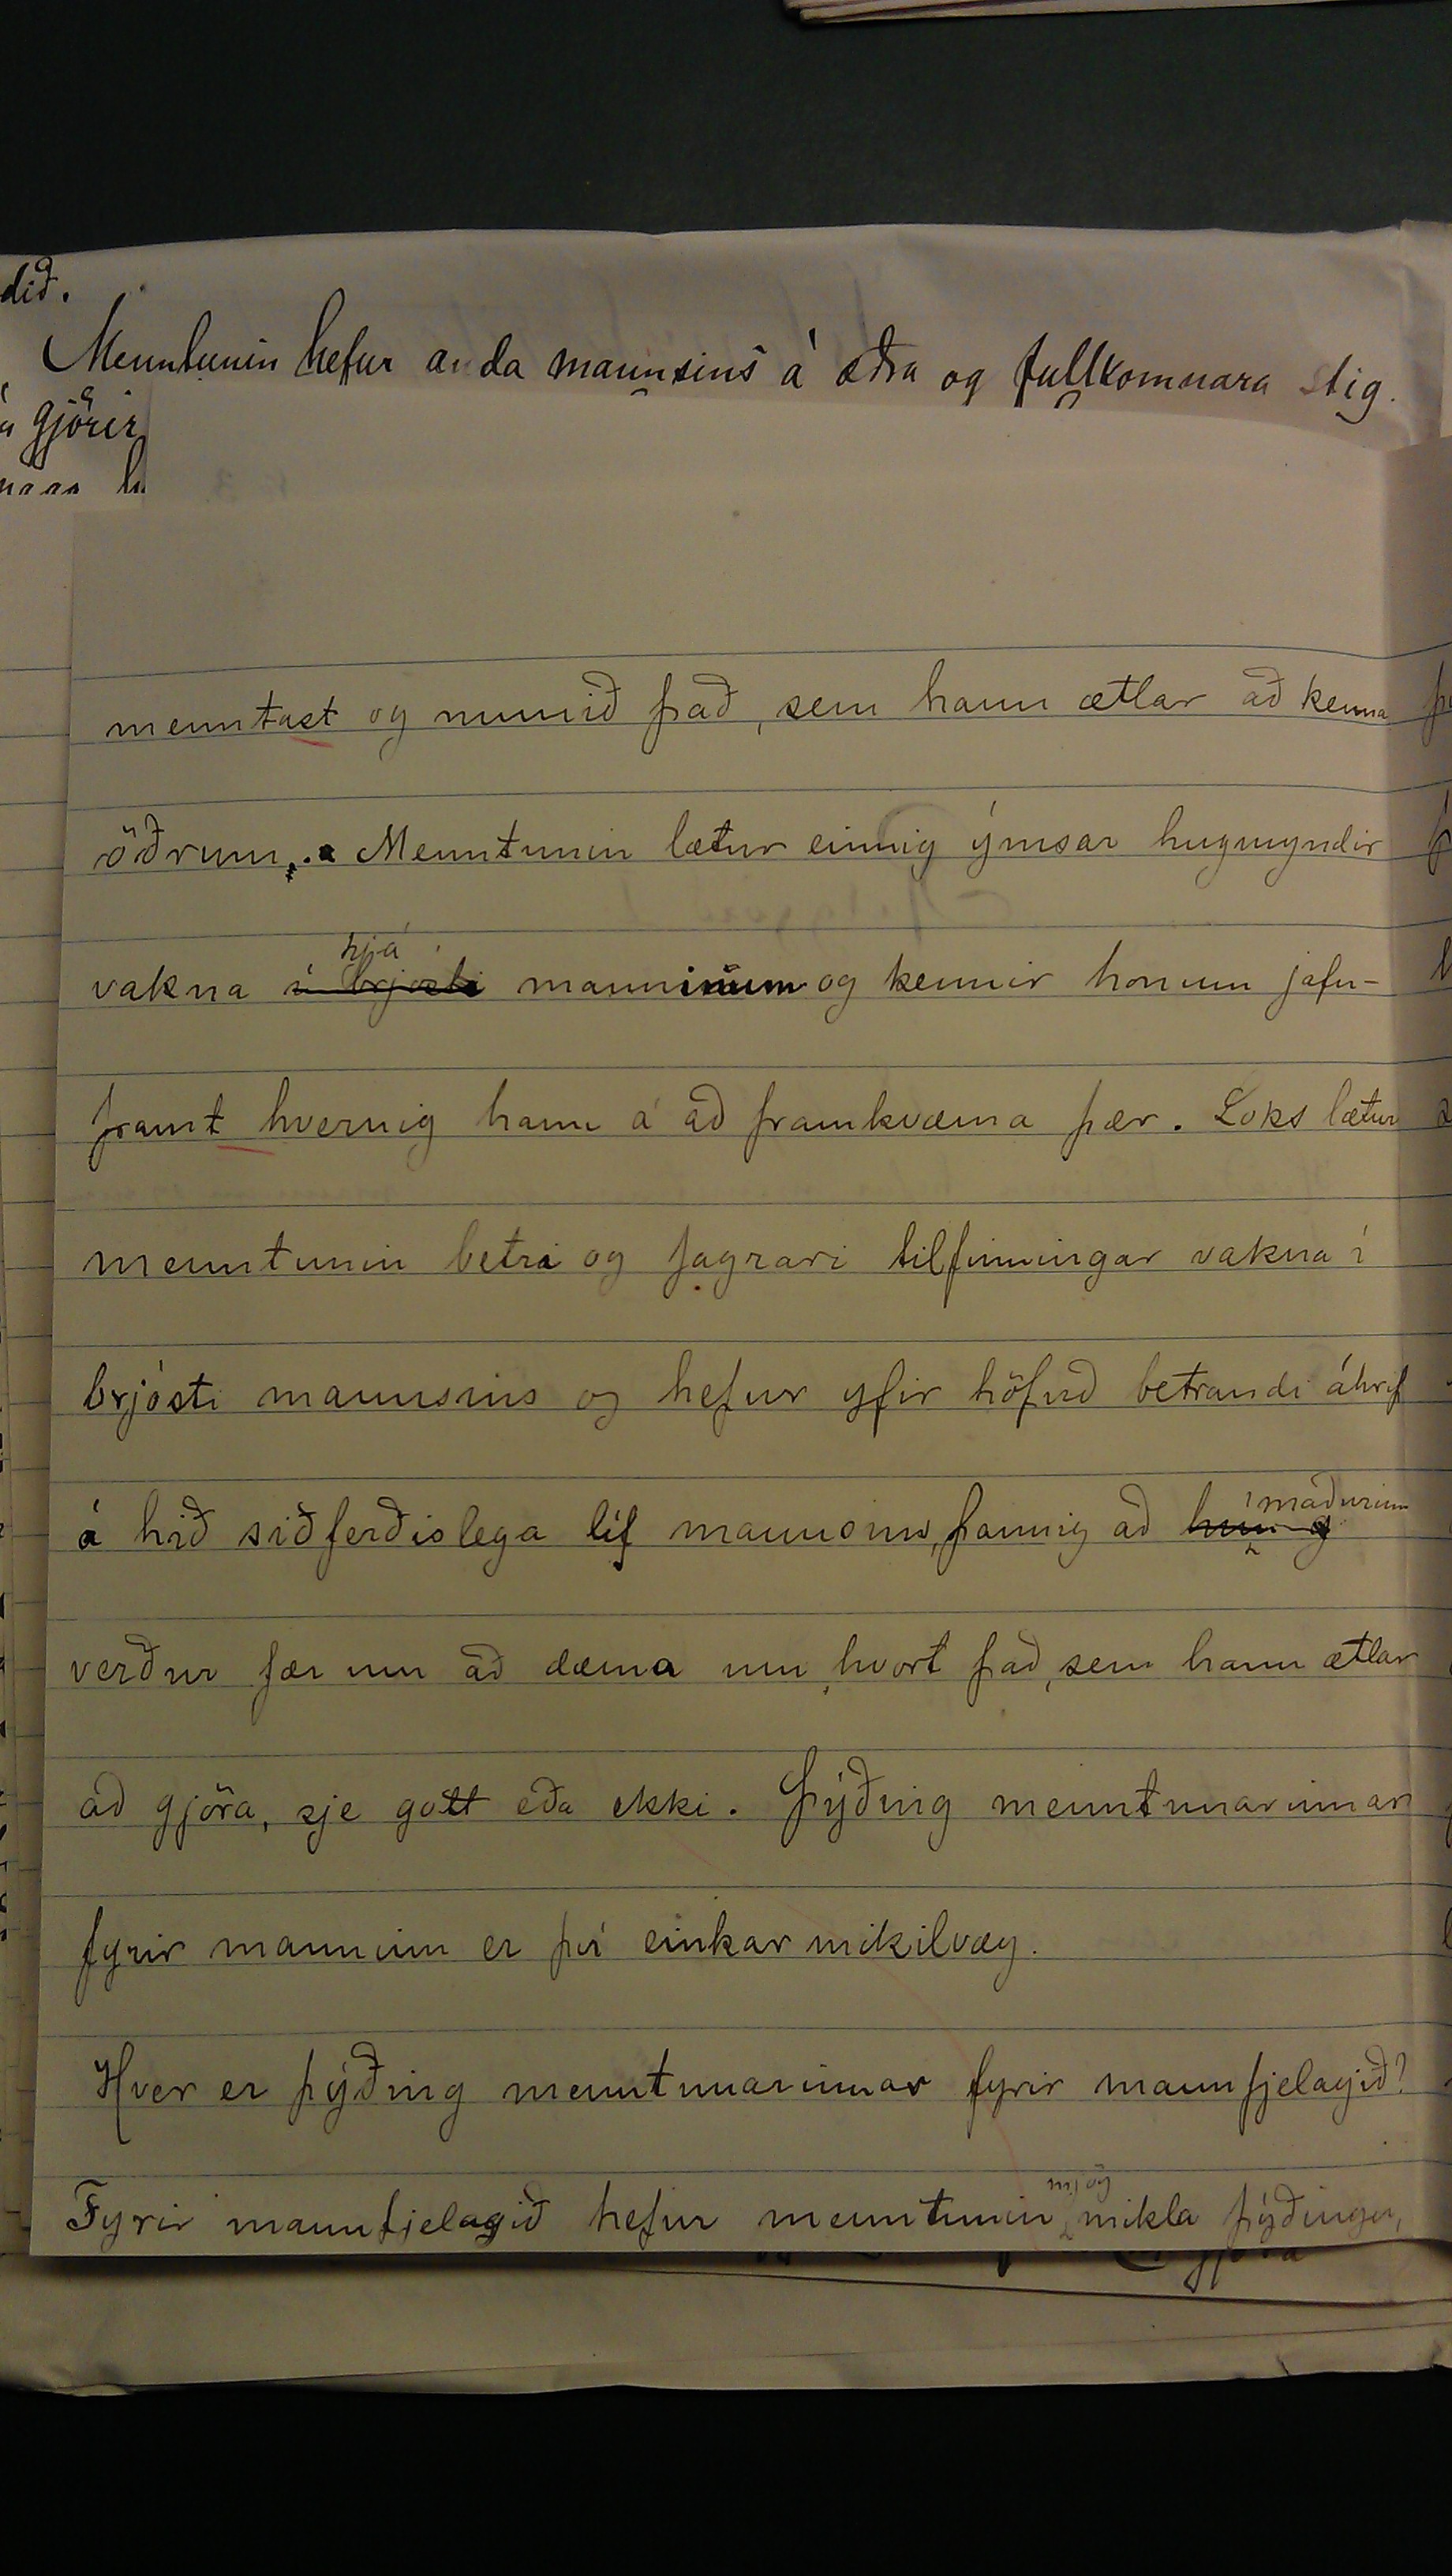 dið.
Menntunin hefur anda mannsins á æðra og fullkomnara stig.
gjörir
menntast og numið það, sem hann ætlar að kenna
öðrum. Menntunin lætur einnig ýmsar hugmyndir
hjá
vakna í brjósti manninum og kennir honum jafn-
framt hvernig hann á að framkvæma þær. Loks lætur
menntunin betri og fagrari tilfinningar vakna í
brjósti mannsins og hefur yfir höfuð betrandi áhrif
maðurinn
á hið siðferðislega líf mannsins, þannig að
verður fær um að dæma um, hvort það, sem hann ætlar
að gjöra, sje gott eða ekki. Þýðing menntunarinnar
fyrir manninn er því einkar mikilvæg.
Hver er þýðing menntunarinnar fyrir mannfjelagið?
Fyrir mannfjelagið hefur menntunin mikla þýðingu,